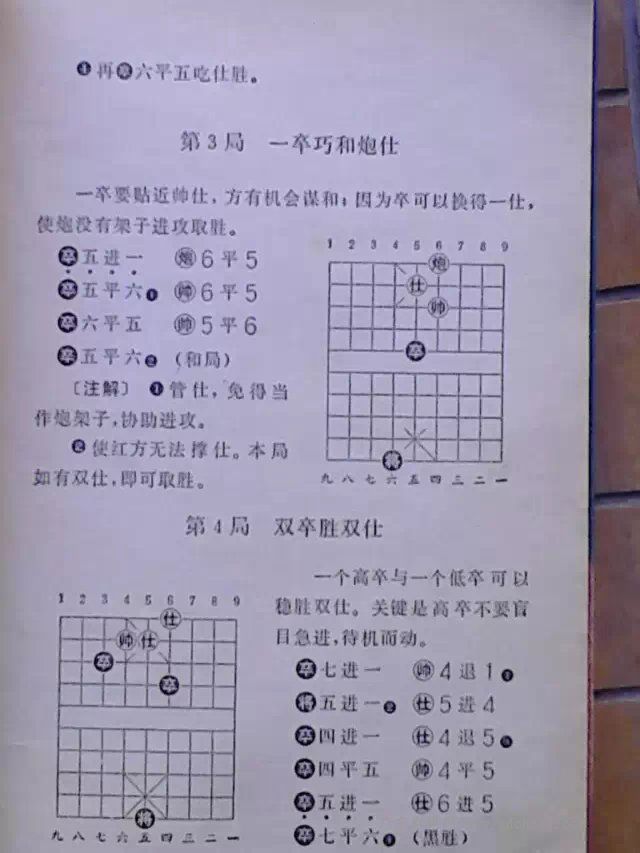 ❹再卒六平五吃仕胜。
第3局 一卒巧和炮仕
一卒要贴近帅仕，方有机会谋和；因为卒可以换得一仕，
使炮没有架子进攻取胜。
卒五进一 炮6平5
卒五平六❶ 帅6平5
卒六平五 帅5平6
卒五平六❷ （和局）
〔注解〕 ❶管仕，免得当
作炮架子，协助进攻。
❷使红方无法撑仕。本局
如有双仕，即可取胜。
1 2 3 4 5 6 7 8 9
炮
仕
帅
卒
将
九 八 七 六 五 四 三 二 一
第4局 双卒胜双仕
1 2 3 4 5 6 7 8 9
仕
帅 仕
卒
卒
将
九 八 七 六 五 四 三 二 一
一个高卒与一个低卒可以
稳胜双仕。关键是高卒不要盲
目急进，待机而动。
卒七进一 帅4退1
将五进一 仕5进4
卒四进一 仕4退5
卒四平五 帅4平5
卒五进一 仕6进5
卒七平六 （黑胜）